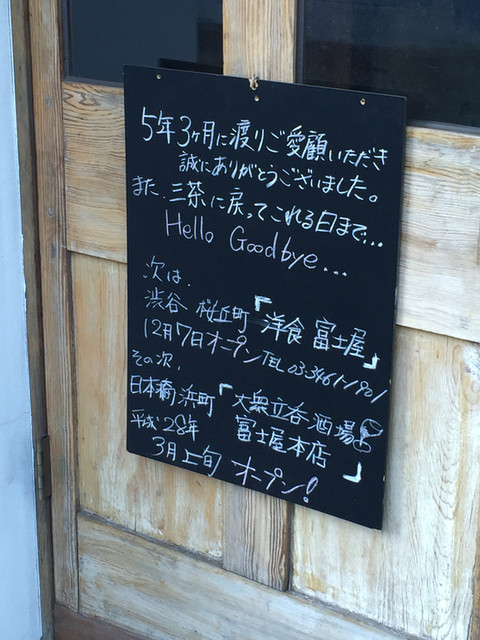 5年3ヶ月に渡りご愛顧いただき
誠にありがとうございました。
また、三茶に戻ってこれる日まで...
Hello Goodbye...
次は、
渋谷 桜丘町『洋食 富士屋』
12月7日オープン TEL 03-3461-1901
その次、
日本橋浜町『大衆立呑酒場
平成28年 富士屋本店』
3月上旬 オープン!